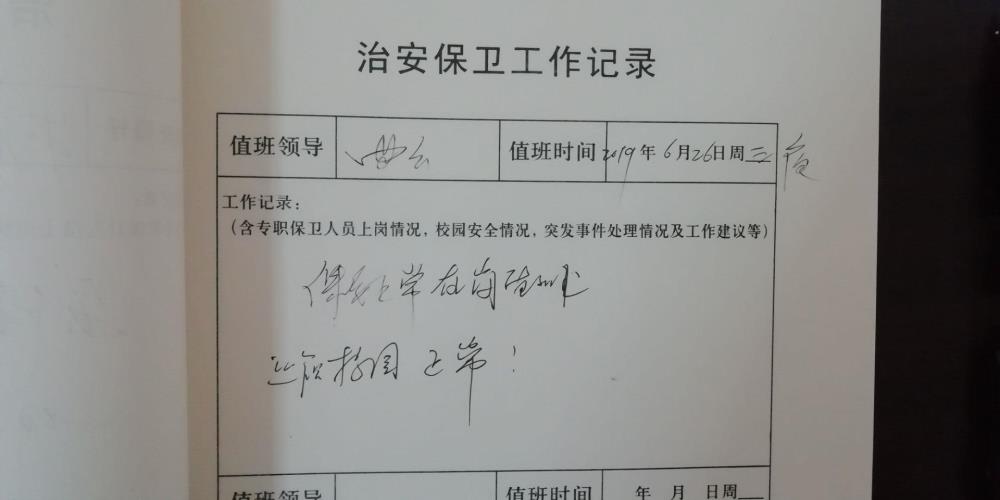 治安保卫工作记录
值班领导 值班时间 2019年6月26日周三 夜
工作记录:
(含专职保卫人员上岗情况,校园安全情况,突发事件处理情况及工作建议等)
保安正常在岗值班
校园正常!
值班领导 值班时间 年 月 日周